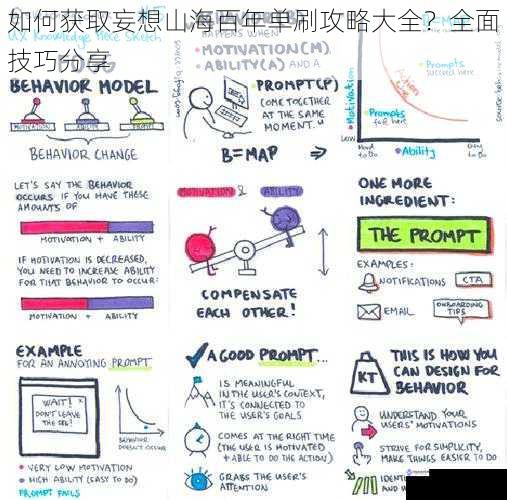 如何获取妄想山海百年单刷攻略大全？全面
技巧分享
HAPPENS WHEN
MOTIVATION(M)
ABILITY(A) AND A
PROMPT(P)
COME TOGETHER
AT THE SAME
MOMENT."
B=MAP
BEHAVIOR MODEL
MOTIVATION
ABILITY
PROMPT
BEHAVIOR CHANGE
Motivation
Prompts
succeed here
Action
Prompts
fail here
LOW
Hard
to Do
Ability
Easy
to Do
LET'S SAY THE BEHAVIOR
OCCURS IF YOU HAVE THESE
AMOUNTS OF
MOTIVATION + ABILITY
IF MOTIVATION IS DECREASED,
YOU NEED TO INCREASE ABILITY
FOR THAT BEHAVIOR TO OCCUR:
MOTIVATION + ABILITY
MOTIVATION & ABILITY
COMPENSATE
EACH OTHER!
ONE MORE
INGREDIENT:
THE PROMPT
EXAMPLES:
NOTIFICATIONS
CTA
EMAIL
ONBOARDING
TIPS
EXAMPLE
FOR AN ANNOYING PROMPT
WAIT!
DON'T LEAVE
THE SITE!
BEHAVIOR
DOESN'T OCCUR
VERY LOW MOTIVATION
HIGH ABILITY (EASY TO DO)
PROMPT FAILS
A GOOD PROMPT...
IS MEANINGFUL
IN THE USER'S CONTEXT,
IT'S CONNECTED TO
THE USER'S GOALS
COMES AT THE RIGHT TIME
(THE USER IS MOTIVATED
+ ABLE TO DO THE ACTION)
GRABS THE USER'S
ATTENTION
KT
THIS IS HOW YOU
CAN DESIGN FOR
BEHAVIOR
UNDERSTAND YOUR
USERS' MOTIVATIONS
STRIVE FOR SIMPLICITY,
MAKE THINGS EASIER TO DO